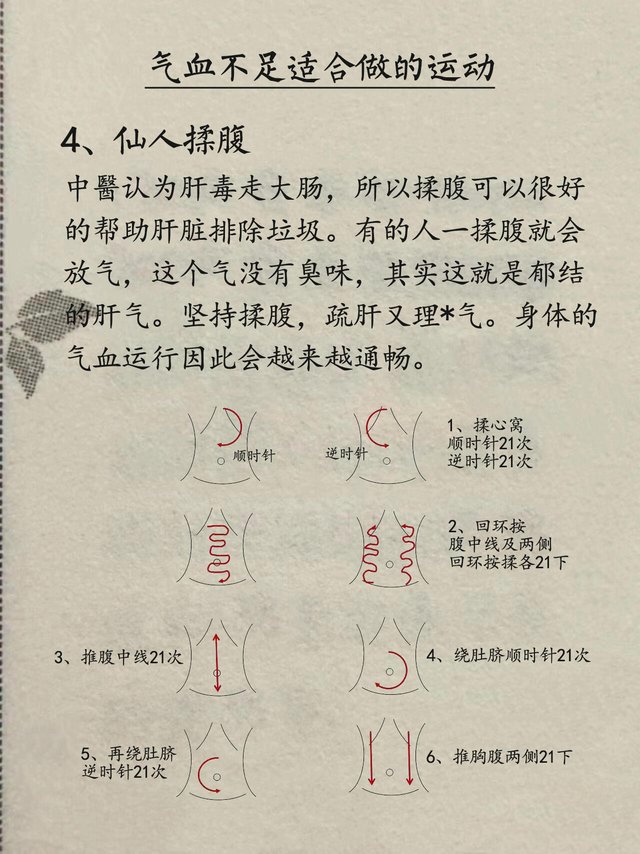 气血不足适合做的运动
4、仙人揉腹
中醫认为肝毒走大肠，所以揉腹可以很好
的帮助肝脏排除垃圾。有的人一揉腹就会
放气，这个气没有臭味，其实这就是郁结
的肝气。坚持揉腹，疏肝又理*气。身体的
气血运行因此会越来越通畅。
顺时针
逆时针
1、揉心窝
顺时针21次
逆时针21次
2、回环按
腹中线及两侧
回环按揉各21下
3、推腹中线21次
4、绕肚脐顺时针21次
5、再绕肚脐
逆时针21次
6、推胸腹两侧21下